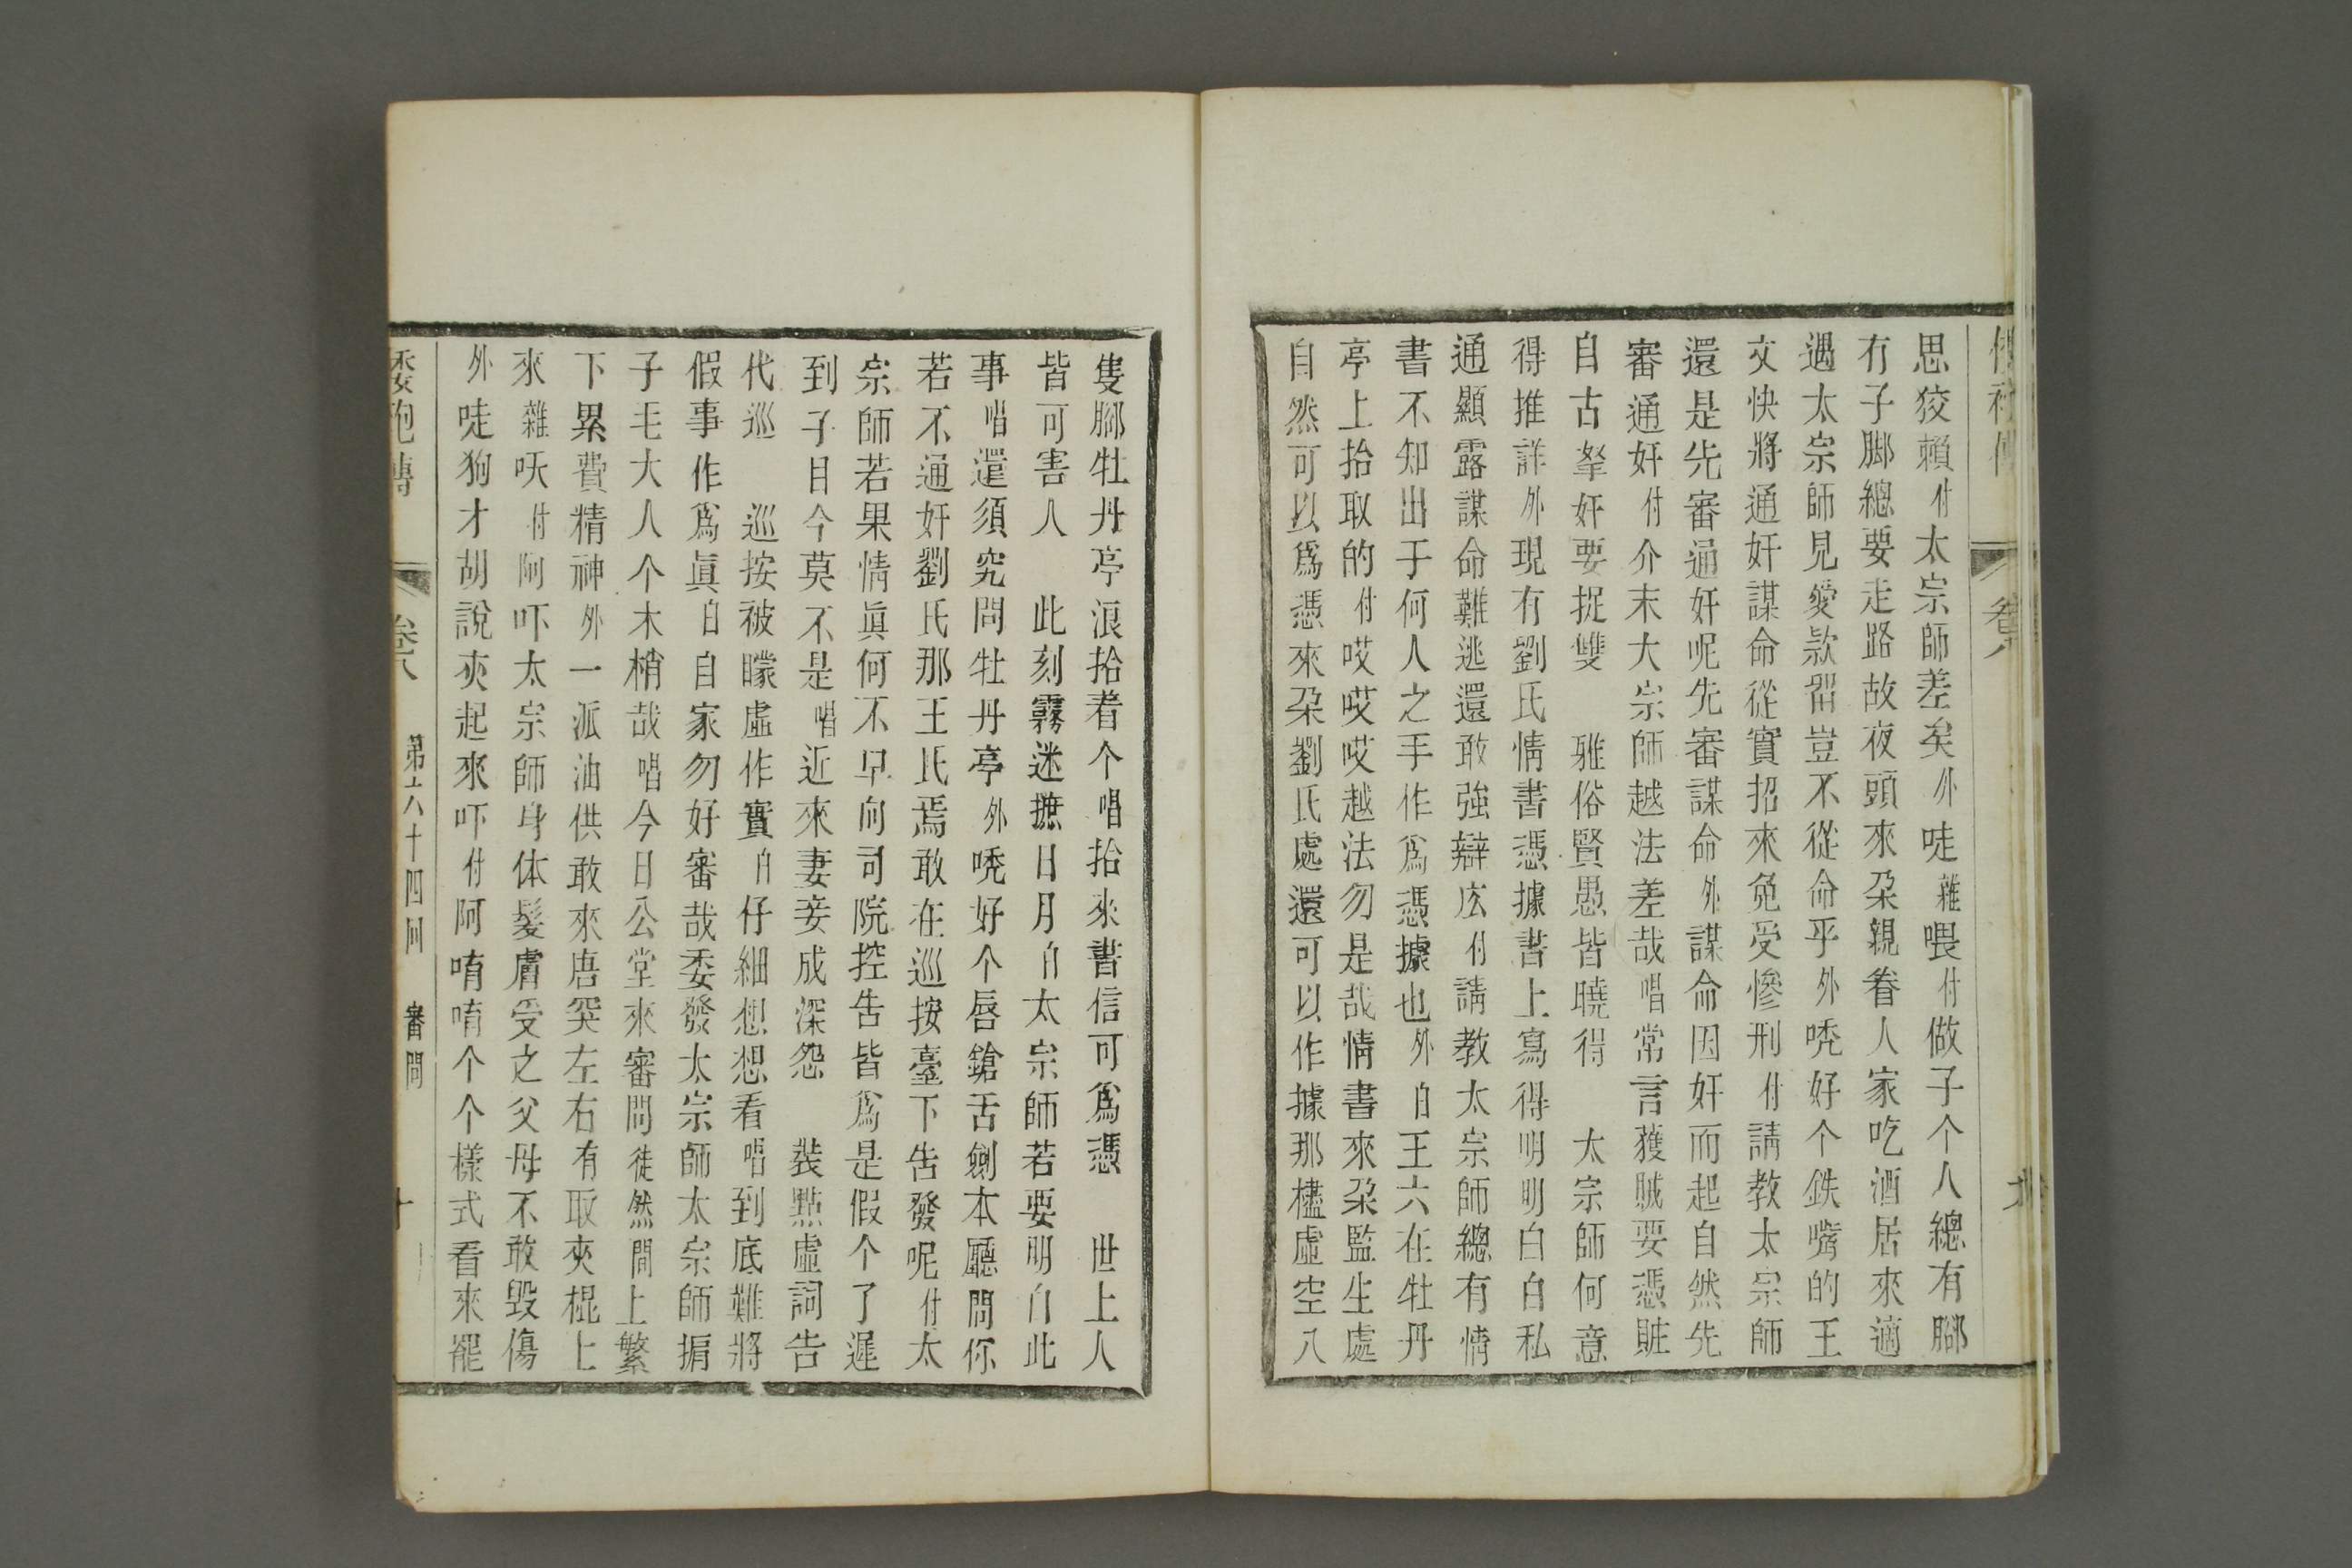 思狡賴付太宗師差矣外哇雜喂付做子个人總有腳
有子脚總要走路故夜頭來朶親眷人家吃酒居來適
遇太宗師見愛款畱豈不從命乎外唗好个鉄嘴的王
文快將通奸謀命從實招來免受慘刑付請教太宗師
還是先審通奸呢先審謀命外謀命因奸而起自然先
審通奸付介末大宗師越法差哉唱常言獲賊要憑賍
自古拏奸要捉雙　雅俗賢愚皆曉得　太宗師何意
得推詳外現有劉氏情書憑據書上寫得明明白白私
通顯露謀命難逃還敢強辯広付請教太宗師總有情
書不知出于何人之手作爲憑據也外白王六在牡丹
亭上拾取的付哎哎哎越法勿是哉情書來朶監生處
自然可以爲憑來朶劉氏處還可以作據那櫨虛空八
隻腳牡丹亭浪拾着个唱拾來書信可爲憑　世上人
皆可害人　此刻霧迷摭日月白太宗師若要明白此
事唱還須究問牡丹亭外唗好个唇鎗舌劍本廳問你
若不通奸劉氏那王氏焉敢在巡按臺下告發呢付太
宗師若果情眞何不早向司院控告皆爲是假个了遲
到子目今莫不是唱近來妻妾成深怨　裝點虛詞告
代巡　巡按被矇虛作實白仔細想想看唱到底難將
假事作爲眞白自家勿好審哉委發太宗師太宗師掮
子毛大人个木梢哉唱今日公堂來審問徒然間上繁
下累費精神外一派油供敢來唐突左右有取夾棍上
來雜吷付阿吓太宗師身体髮膚受之父母不敢毀傷
外哇狗才胡說夾起來吓付阿唷唷个个樣式看來罷
倭袍傳　卷八　第六十四回　審問　十